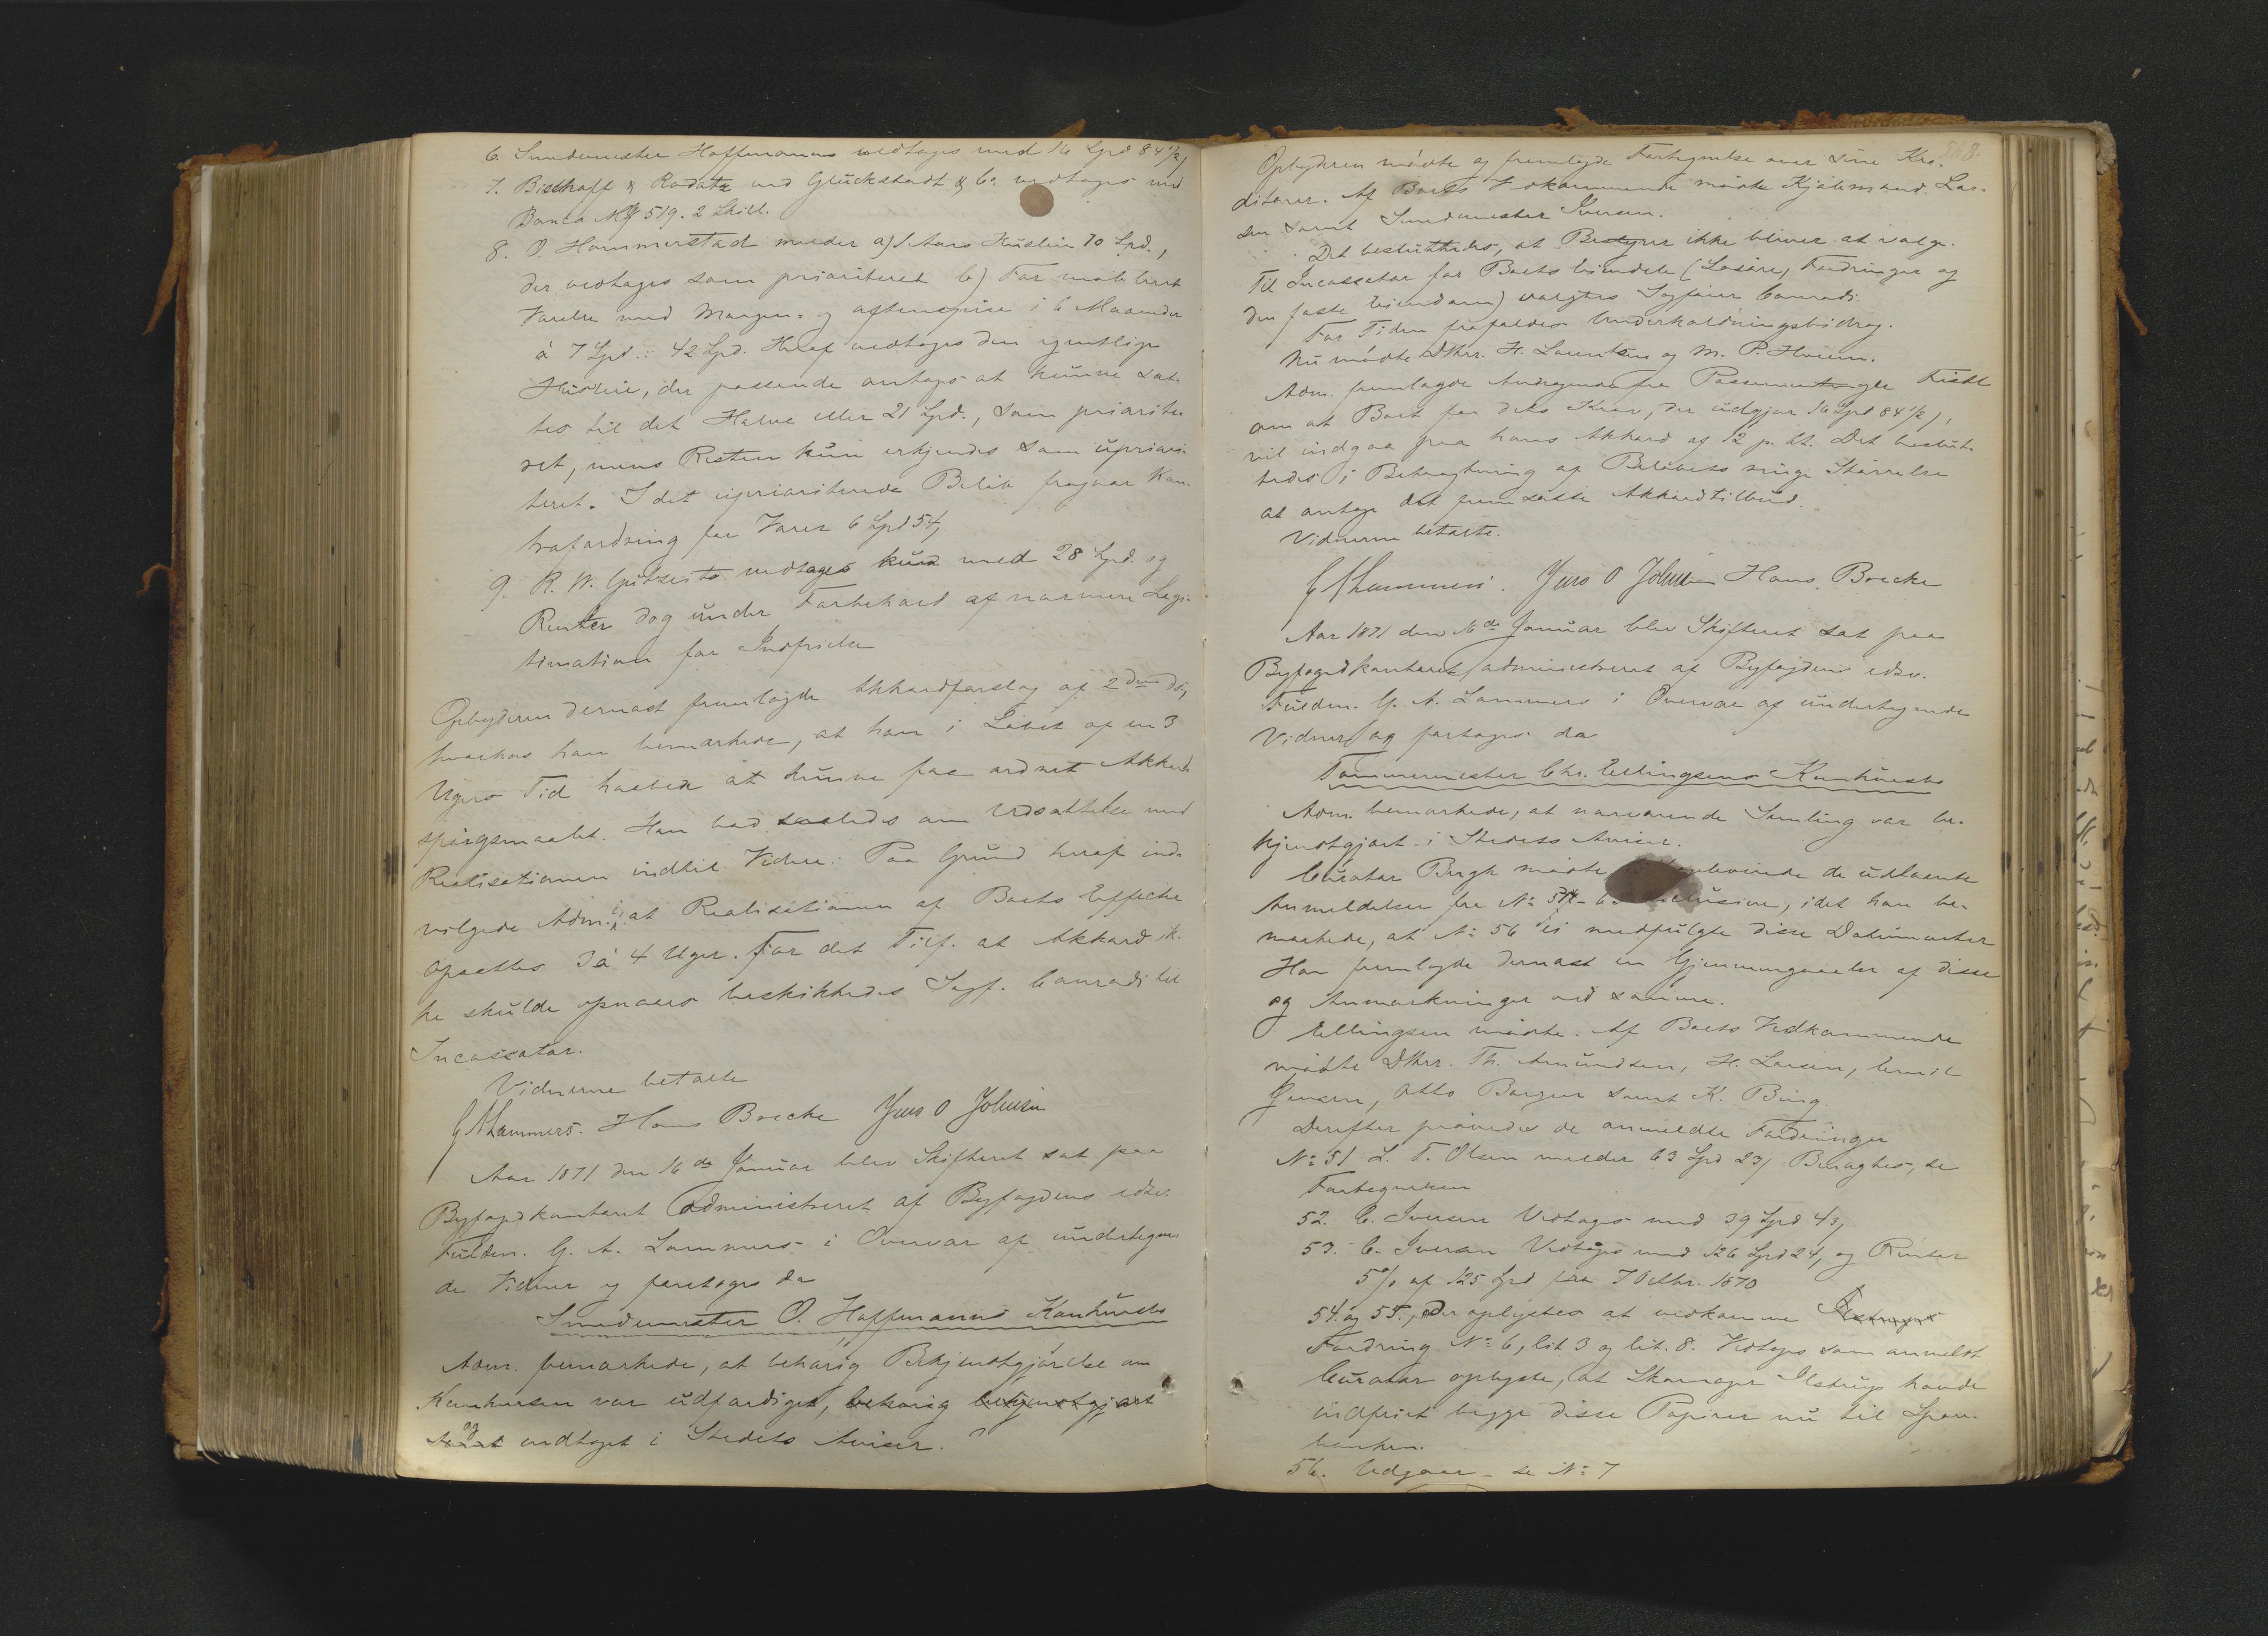 6. Smedemester Hoffmanns vedtages med 16 Spd 84 1/2,
7. Bisthoff & Rodatz ved Glückstadt & Co vedtages med
Banco Mk 519. 2 Skill.
8. O. Hammerstad melder a) 1 Aars Husleie 70 Spd.,
der vedtages som prioriteret b) For møbleret
Værelse med Morgen- og aftenspise i 6 Maaneder
à 7 Spd.: 42 Spd. Heraf vedtages den egentlige
Husleie, der passende antages at kunne sæt-
tes til det Halve eller 21 Spd., som priorite-
ret, mens Resten kun erkjendes som upriori-
teret. I det uprioriterede Beløb fragaar Kon-
trafordring for Varer 6 Spd 54,
9. R. W. vedtages kun med 28 Spd. og
Renter dog under Forbehold af nærmere Legi-
timation for Indfrielse
Opbyderen dernæst fremlagde Akkordforslag af 2den ds,
hvorhos han bemærkede, at han i Løbet af en 3
Ugers Tid haabede at kunne faa ordnet Akkord-
spørgsmaalet. Han bad saaledes om Udsættelse med
Realisationen indtil Videre. Paa Grund heraf ind-
vilgede Adm. i, at Realisationen af Boets Effecter
opsættes 3 à 4 Uger. For det Tilf. at Akkord ik-
ke skulde opnaaes beskikkedes Sagf. Conradi til
Incassator.
Vidnerne betalte
G A Lammers. Hans Boecke Jens O Johnsen
Aar 1871 den 16de Januar blev Skifteret sat paa
Byfogdkontoret administreret af Byfogdens edsv.
Fuldm. G. A. Lammers i Overvær af undertegne-
de Vidner og foretoges da
Smedemester O. Hoffmanns Konkursbo
Adm. bemærkede, at behørig Bekjendtgjørelse om
Konkursen var udfærdiget, behørig bekjendtgjort
og indtaget i Stedets Aviser.
568
Opbyderen mødte og fremlagde Fortegnelse over sine Kre-
ditorer. Af Boets Vedkommende mødte Kjøbmand Lar-
sen samt Smedemester Iversen.
Det besluttedes, at Bestyrer ikke bliver at vælge.
Til Incassator for Boets Eiendele (Løsøre, Fordringer og
den faste Eiendom) valgtes Sagfører Conradi.
For Tiden frafaldes Underholdningsbidrag.
Nu mødte DHrr. H. Laurentzen og M. P. Hveem.
Adm. fremlagde Andragende fra Fischl
om at Boet for dets Krav, der udgjør 16 Spd 84 1/2,
vil indgaa paa hans Akkord af 12 p. Ct. Det beslut-
tedes i Betragtning af Beløbets ringe Størrelse
at antage det fremsatte Akkordtilbud.
Vidnerne betalte.
G A Lammers. Jens O Johnsen Hans Boecke
Aar 1871 den 16de Januar blev Skifteret sat paa
Byfogdkontoret administreret af Byfogdens edsv.
Fuldm. G. A. Lammers i Overvær af undertegnede
Vidner og foretoges da
Tømmermester Chr. Ellingsens Konkursbo
Adm. bemærkede, at nærværende Samling var be-
kjendtgjort i Stedets Aviser.
Curator Bugge mødte de udlaante
Anmeldelser fra No 51 - inclusive, idet han be-
mærkede, at No 56 ei medfulgte disse Dokumenter
Han fremlagde dernæst en Gjennemgaaelse af disse
og Anmærkninger ved samme.
Ellingsen mødte. Af Boets Vedkommende
mødte DHrr. Th. Amundsen, H. Larsen, Emil
Jensen, Otto Borgen samt K. Bing.
Derefter prøvedes de anmeldte Fordringer
No 51 L. T. Olsen melder 63 Spd 23, Benægtes, se
Fortegnelsen
52. C. Iversen Vedtages med 39 Spd 43,
53. C. Iversen Vedtages med 126 Spd 24, og Renter
5 % af 125 Spd fra 7 Octbr. 1870
54. og 55., der oplystes at vedkomme
Fordring No 6, lit 3 og lit. 8. Vedtages som anmeldt
Curator oplyste, at Skomager Ilstrup havde
indfriet begge disse Papirer nu til Spare-
banken.
56. Udgaar - se No 7